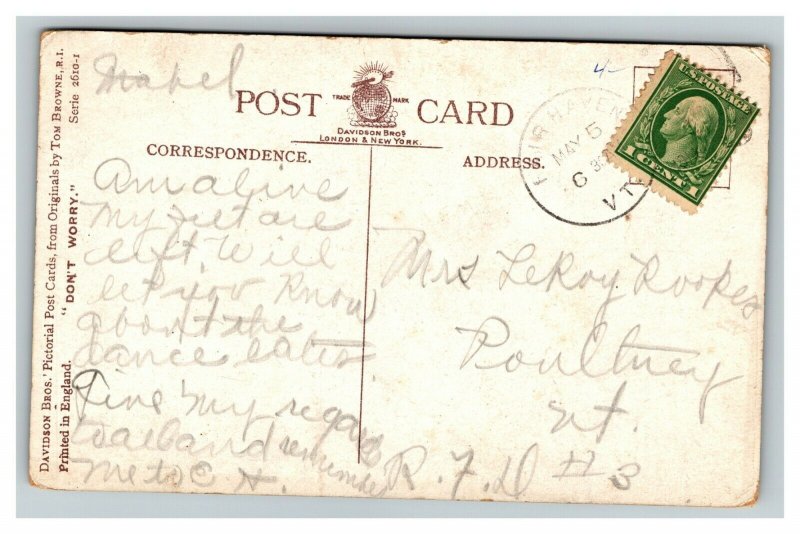 DAVIDSON BROS.' Pictorial Post Cards, from Originals by TOM BROWNE, R.I.
Serie 2610-1
Printed in England. "DON'T WORRY."
Mabel
POST CARD
TRADE MARK
DAVIDSON BROS
LONDON & NEW YORK.
CORRESPONDENCE.
ADDRESS.
4-
FAIR HAVEN
MAY 5
6
VT
U.S. POSTAGE
1 CENT 1
Am alive
My feet are
left. Will
let you know
about the
dance later
Give my regards
to
and remember
me to C H.
Mrs LeRoy Rookes
Poultney
Vt.
R.F.D #3